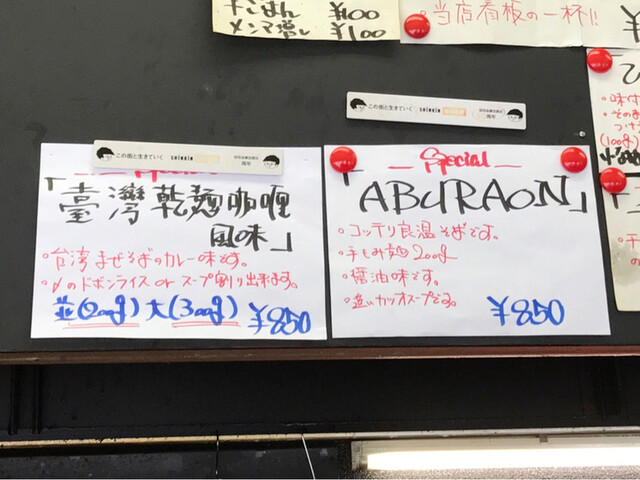 ごはん ¥100
メンマ増し ¥100
・当店看板の一杯!!
この街と生きていく
この街と生きていく
Special
「臺灣乾麺咖喱
風味」
・台湾まぜそばのカレー味です。
・〆のドボンライス or スープ割り出来ます。
並(200g) 大(300g) ¥850
Special
「ABURAON」
・コッテリ良温そばです。
・手もみ麺200g
・醤油味です。
・追いカツオスープです。
¥850
・味付
(100g)